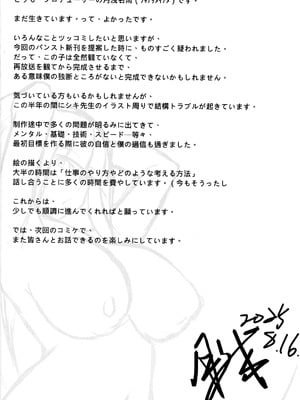 まだ生きています・って・よかったです・
いろんなことツッコミしたいと思いますが・
今回のパンスト新刊を提案した時に・ものすごく疑われました・
だって・この子は全然観ていなくて・
再放送を観てから完成させるまで・
ある意味僕の独断どころがないと完成できないかもしれません・
気づいている方もいるかもしれませんが・
この半年の間にシキ先生のイラスト周りで結構トラブルが起きています・
制作途中で多くの問題が明るみに出てきて・
メンタル・基礎・技術・スピード…等々・
最初目標を作る際に彼の自信と僕の過信も過ぎました・
絵の描くより・
大半の時間は「仕事のやり方やどのような考える方法」
話し合うことに多くの時間を費やしています・(今もそうったし
これからは・
少しでも順調に進んでくれればと願っています・
では・次回のコミケで・
また皆さんとお話できるのを楽しみにしています・
2025
8.16.